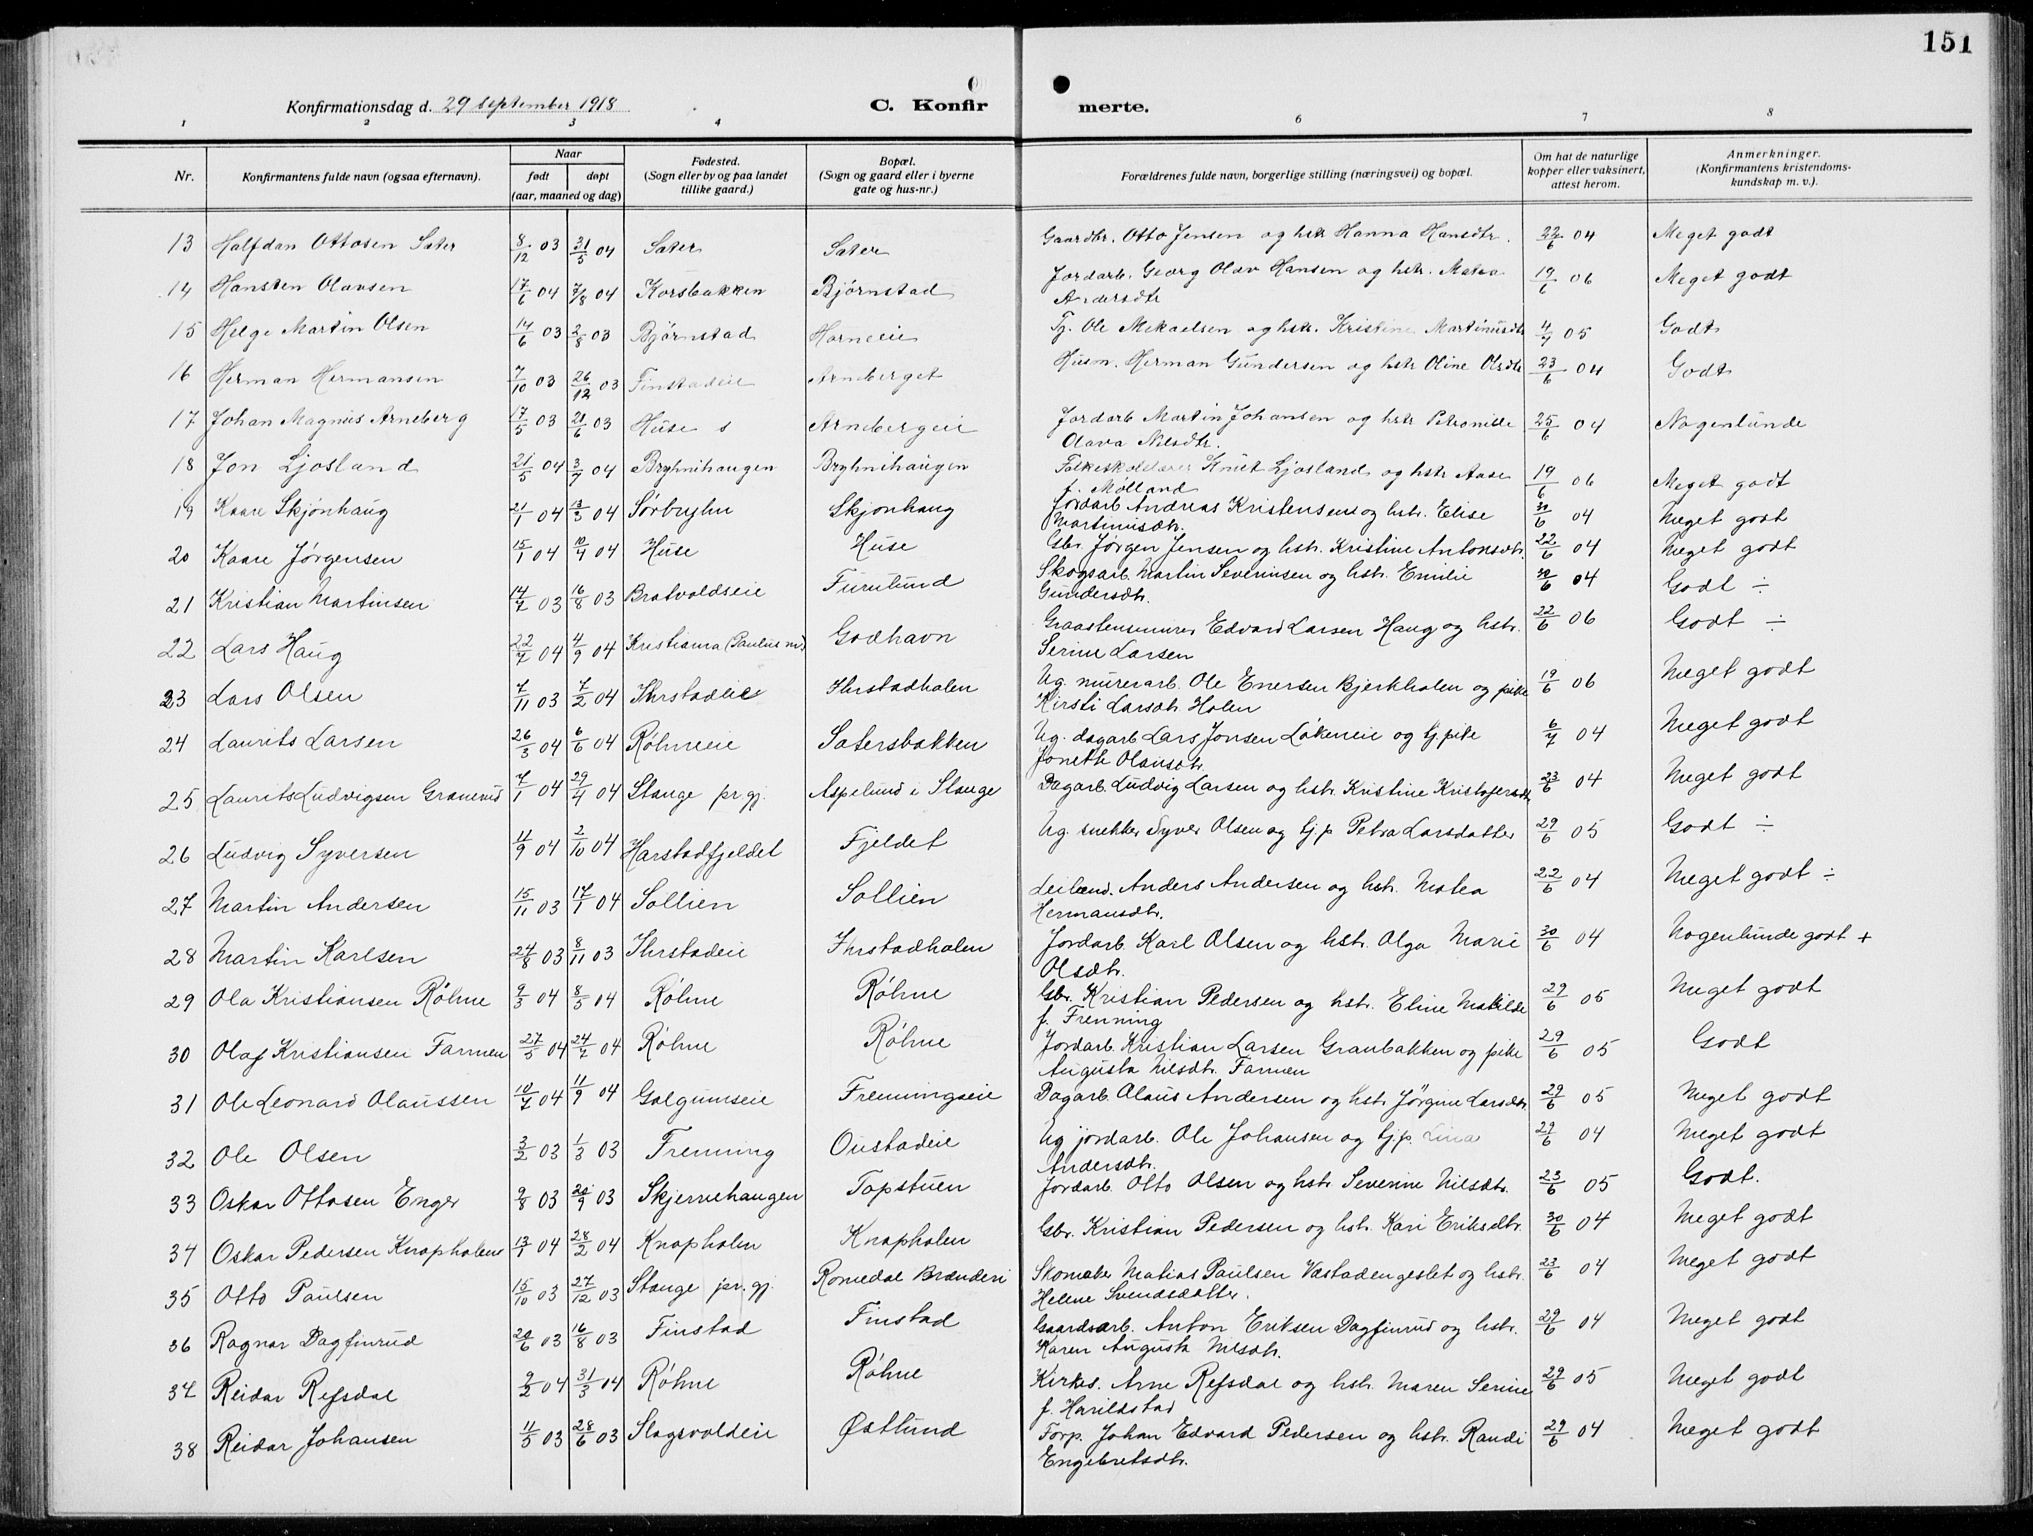 151
Konfirmationsdag d. 29 september 1918
C. Konfir
merte.
1 2 3 4 6 7 8
Nr.
Konfirmantens fulde navn (ogsaa efternavn).
Naar
født døpt
(aar, maaned og dag)
Fødested.
(Sogn eller by og paa landet
tillike gaard.)
Bopæl.
(Sogn og gaard eller i byerne
gate og hus-nr.)
Forældrenes fulde navn, borgerlige stilling (næringsvei) og bopæl.
Om hat de naturlige
kopper eller vaksinert,
attest herom.
Anmerkninger.
(Konfirmantens kristendoms-
kundskap m. v.).
13 Halfdan Ottosen Sater 8/12 03 31/5 04 Sater Sater Gaardbr. Otto Jensen og hstr. Hanna Hansdtr. 22/6 04 Meget godt
14 Hansten Olavsen 17/6 04 7/8 04 Korsbakken Bjørnstad Jordarb. Georg Olav Hansen og hstr. Matea 19/6 06 Meget godt
Andersdtr
15 Helge Martin Olsen 14/6 03 2/8 03 Bjørnstad Horneeie Tj. Ole Mekaelsen og hstr. Kristine Martinusdtr 4/7 05 Godt
16 Herman Hermansen 7/10 03 26/12 03 Finstadeie Arneberget Husm. Herman Gundersen og hstr Oline Olsdtr 23/6 04 Godt
17 Johan Magnus Arneberg 17/5 03 21/6 03 Huse s Arnebergeie Jordarb Martin Johansen og hstr Petronille 25/6 04 Nogenlunde
Olava Nilsdtr.
18 Jon Ljosland 21/5 04 3/7 04 Bryhnihaugen Bryhnihaugen Folkeskolelærer Knut Ljosland og hstr Aase 19/6 06 Meget godt
f. Mølland
19 Kaare Skjønhaug 21/1 04 13/3 04 Sørbryhn Skjønhaug Jordarb Andreas Kristensen og hstr. Elise 30/6 04 Meget godt
Martinusdtr.
20 Kaare Jørgensen 15/1 04 10/4 04 Huse Huse Gbr. Jørgen Jensen og hstr. Kristine Antonsdtr. 22/6 04 Meget godt
21 Kristian Martinsen 14/7 03 16/8 03 Bratvoldseie Furulund Skogsarb. Martin Severinsen og hstr. Emilie 30/6 04 Godt ÷
Gundersdtr.
22 Lars Haug 22/7 04 4/9 04 Kristiania (Paulus m.) Godhavn Graastensmurer Edvard Larsen Haug og hstr. 22/6 06 Godt ÷
Serine Larsen
23 Lars Olsen 7/11 03 7/2 04 Ihrstadeie Ihrstadholen Ug. murerarb. Ole Enersen Bjerkholen og pike 19/6 06 Meget godt
Kirsti Larsdtr. Holen
24 Laurits Larsen 26/3 04 6/6 04 Røhneeie Satersbakken Ug. dagarb Lars Jonsen Løkeneie og tj. pike 6/7 04 Meget godt
Jonette Olausdtr.
25 Laurits Ludvigsen Granerud 7/1 04 29/4 04 Stange pr.gj. Aspelund i Stange Dagarb. Ludvig Larsen og hstr Kristine Kristofersdtr 23/6 04 Meget godt
26 Ludvig Syversen 11/9 04 2/10 04 Harstadfjeldet Fjeldet Ug. snekker Syver Olsen og tj.p Petra Larsdatter 29/6 05 Godt ÷
27 Martin Andersen 15/11 03 17/1 04 Sollien Sollien Leilænd. Anders Andersen og hstr. Matea 22/6 04 Meget godt ÷
Hermansdtr.
28 Martin Karlsen 24/8 03 8/11 03 Ihrstadeie Ihrstadholen Jordarb. Karl Olsen og hstr. Olga Marie 30/6 04 Nogenlunde godt +
Olsdtr.
29 Ola Kristiansen Røhne 9/3 04 8/5 04 Røhne Røhne Gbr. Kristian Pedersen og hstr. Eline Matilde 29/6 05 Meget godt
f. Frenning
30 Olaf Kristiansen Farmen 27/5 04 24/7 04 Røhne Røhne Jordarb. Kristian Larsen Granbakken og pike 29/6 05 Godt
Augusta Nilsdtr. Farmen
31 Ole Leonard Olaussen 10/7 04 11/9 04 Galgumseie Frenningseie Dagarb. Olaus Andersen og hstr. Jørgine Larsdtr 29/6 05 Meget godt
32 Ole Olsen 3/2 03 1/3 03 Frenning Oustadeie Ug jordarb. Ole Johansen og tj.p. Lina 29/6 04 Meget godt
Andersdtr.
33 Oskar Ottosen Enger 9/8 03 20/9 03 Skjervehaugen Tapstuen Jordarb. Otto Olsen og hstr Severine Nilsdtr. 23/6 05 Godt.
34 Oskar Pedersen Knapholen 13/1 04 28/2 04 Knapholen Knapholen Gbr. Kristian Pedersen og hstr. Kari Eriksdtr. 30/6 04 Meget godt
35 Otto Paulsen 15/10 03 27/12 03 Stange pr. gj. Romedal Brænderi Skomaker Matias Paulsen Væstadengeslet og hstr. 23/6 04 Meget godt
Helene Svendsdatter.
36 Ragnar Dagfinrud 20/6 03 16/8 03 Finstad Finstad Gaardsarb. Anton Eriksen Dagfinrud og hstr. 29/6 04 Meget godt
Karen Augusta Nilsdtr.
37 Reidar Refsdal 9/2 04 31/3 04 Røhne Røhne Kirkes. Arne Refsdal og hstr. Maren Serine 29/6 05 Meget godt
f. Harildstad
38 Reidar Johansen 11/5 03 28/6 03 Slagsvoldeie Østlund Forp. Johan Edvard Pedersen og hstr. Randi 29/6 04 Meget godt
Engebretsdtr.